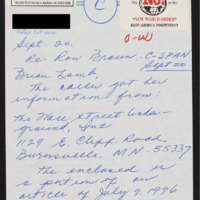 NO!
"NEW WORLD ORDER"
KEEP AMERICA INDEPENDENT
C
O-W
Sept. 20.
Re: Ron Brown. C-SPAN
Sept 20
Brian Lamb,
The caller got her
information from:
the Wall Street Under-
ground, Inc
1129 E. Cliff Road
Burnsville, M.N. 55337
the enclosed is
a portion of an
article of July 9, 1996